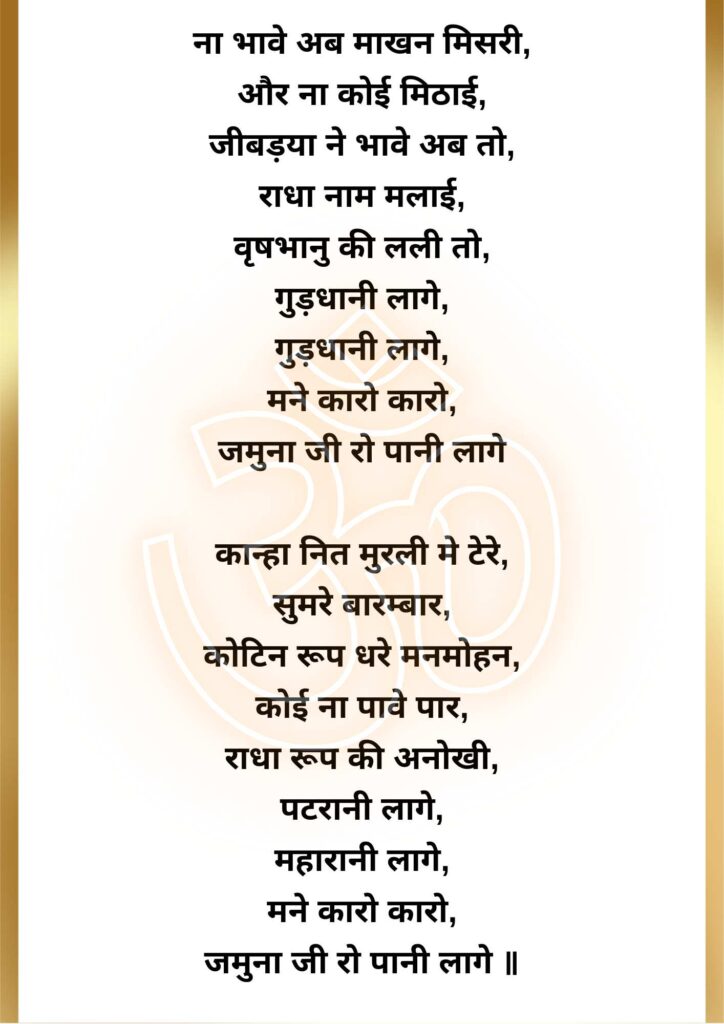 ना भावे अब माखन मिसरी,
और ना कोई मिठाई,
जीबड़या ने भावे अब तो,
राधा नाम मलाई,
वृषभानु की लली तो,
गुड़धानी लागे,
गुड़धानी लागे,
मने कारो कारो,
जमुना जी रो पानी लागे
कान्हा नित मुरली मे टेरे,
सुमरे बारम्बार,
कोटिन रूप धरे मनमोहन,
कोई ना पावे पार,
राधा रूप की अनोखी,
पटरानी लागे,
महारानी लागे,
मने कारो कारो,
जमुना जी रो पानी लागे ॥